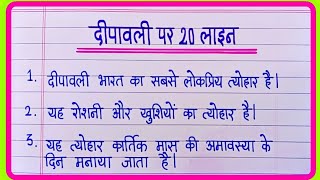 दीपावली पर 20 लाइन
1. दीपावली भारत का सबसे लोकप्रिय त्योहार है।
2. यह रोशनी और खुशियों का त्योहार है।
3. यह त्योहार कार्तिक मास की अमावस्या के
दिन मनाया जाता है।